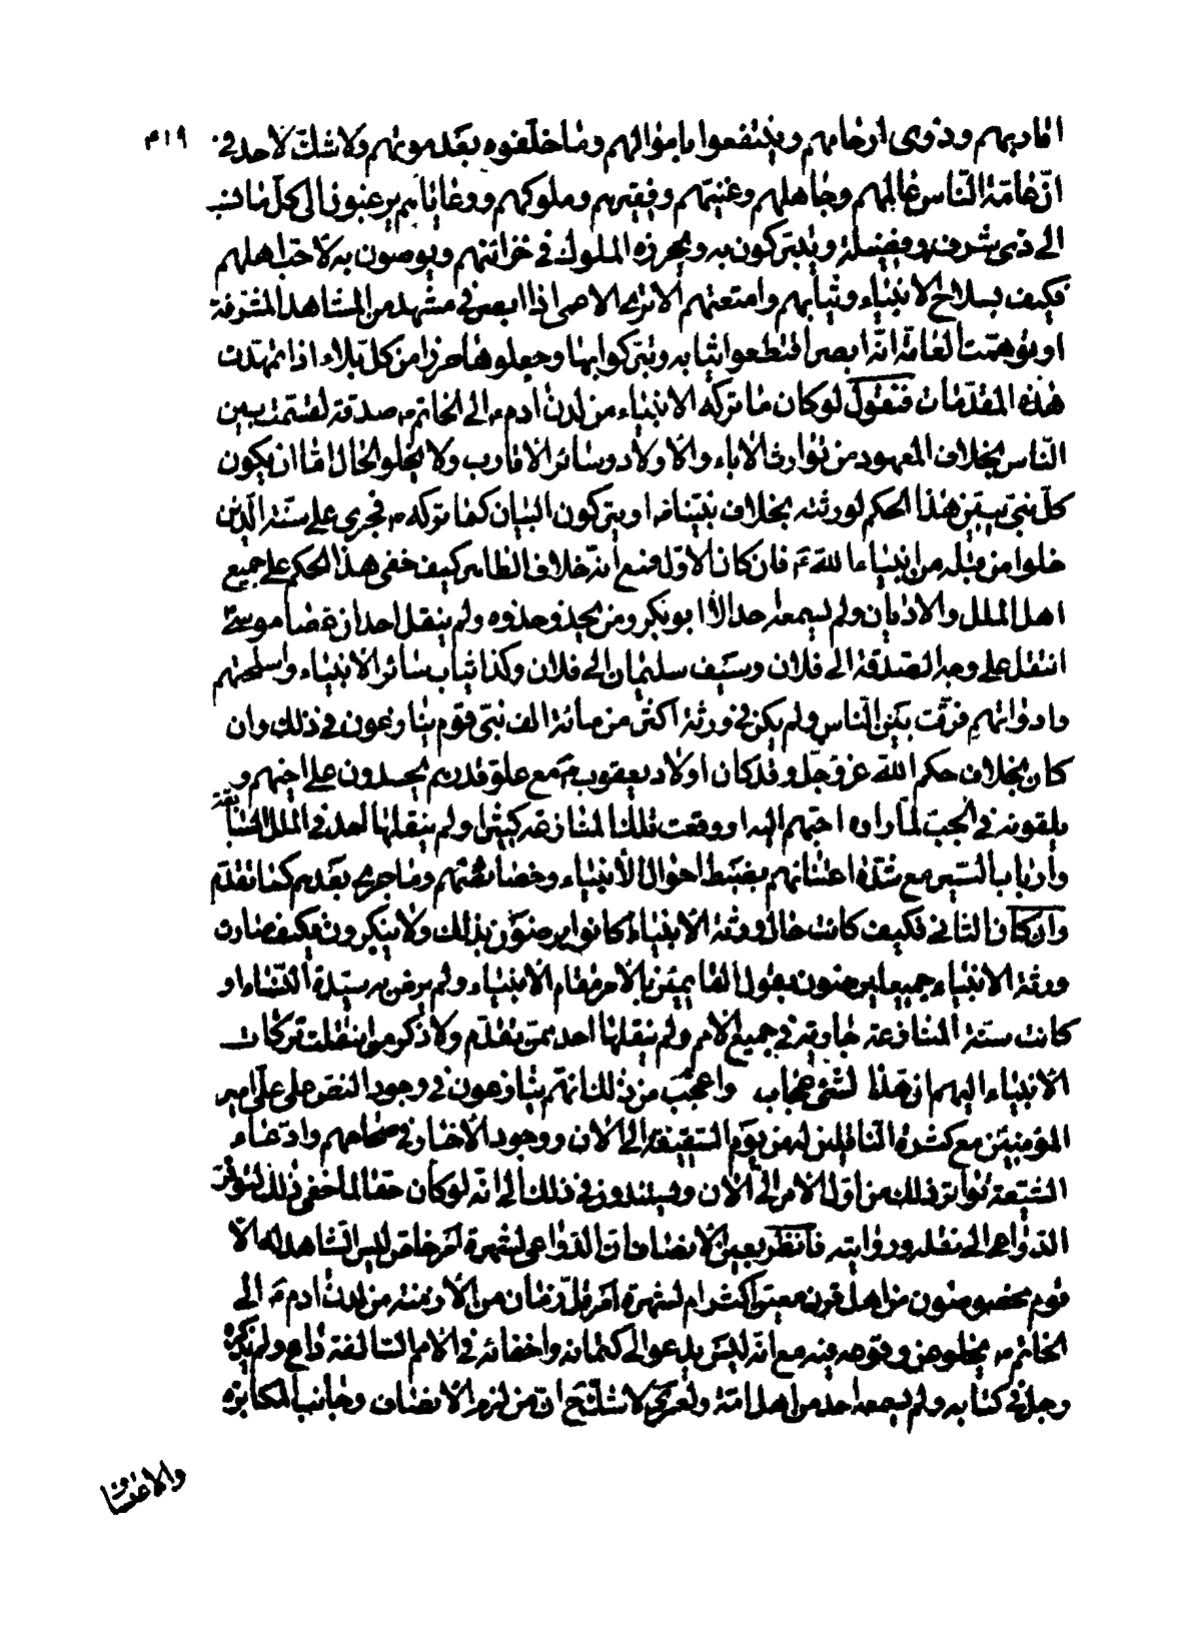 اقاربهم وذوى ارحامهم وينتفعوا باموالهم وما خلّفوه بعد موتهم ولا شكّ لاحد فى
انّ عامّة النّاس عالمهم وجاهلهم وغنيّهم وفقيرهم وملوكهم ورعاياهم يرغبون الى كلّ ما نسب
الى ذى شرف وفضيلة ويتبرّكون به ويحرزه الملوك فى خزائنهم ويوصون به لاحبّ اهلهم
فكيف بسلاح الانبياء وثيابهم وامتعتهم الا ترى الاعمى اذا ابصر فى مشهد من المشاهد المشرّفة
او توهّمت العامّة انّه ابصر اقتطعوا ثيابه وتبرّكوا بها وجعلوها حرزا من كلّ بلاء اذا تمهّدت
هذه المقدّمات فنقول لو كان ما تركه الانبياء من لدن ادم ء الى الخاتم ص صدقة لقسّمت بين
النّاس بخلاف المعهود من توارث الاباء والاولاد وسائر الاقارب ولا يخلو الحال امّا ان يكون
كلّ نبىّ يبيّن هذا الحكم لورثته بخلاف نبيّنا ص او يتركون البيان كما تركه ص فجرى على سنّة الّذين
خلوا من قبله من انبياء اللّه ع فان كان الاوّل فمع انه خلاف الظاهر كيف خفى هذا الحكم على جميع
اهل الملل والاديان ولم يسمعه احد الّا ابو بكر ومن يحذو حذوه ولم ينقل احد ان عصا موسى ع
انتقل على وجه الصّدقة الى فلان وسيف سليمان الى فلان وكذا ثياب سائر الانبياء واسلحتهم
وادواتهم فرّقت بين النّاس ولم يكن فى ورثة اكثر من مائة الف نبىّ قوم ينازعون فى ذلك وان
كان بخلاف حكم اللّه عزّ وجلّ وقد كان اولاد يعقوب ع مع علوّ قدرهم يحسدون على اخيهم و
يلقونه فى الجبّ لمّا راوه احبّهم اليه او وقعت تلك المنازعة كثيرا ولم ينقلها احد فى الملل السّابقة
وارباب السّير مع شدّة اعتنائهم بضبط احوال الانبياء وخصائصهم وما جرى بعدهم كما تقدّم
وان كان الثانى فكيف كانت حال ورثة الانبياء اكانوا يرضون بذلك ولا ينكرون فكيف صارت
ورثة الانبياء جميعا يرضون بقول القائمين بالامر مقام الانبياء ولم يرض به سيّدة النّساء او
كانت سنّة المنازعة جارية فى جميع الامم ولم ينقلها احد ممّن تقدّم ولا ذكر من انتقلت تركات
الانبياء اليهم ان هذا لشئ عجاب واعجب من ذلك انهم ينازعون فى وجود النصّ على علىّ امير
المؤمنين مع كثرة النّاقلين له من يوم السّقيفة الى الان ووجود الاخبار فى صحاحهم وادّعاء
الشّيعة تواتر ذلك من اوّل الامر الى الان ويستندون فى ذلك الى انّه لو كان حقّا لما خفى ذلك لتوفّر
الدّواعى الى نقله وروايته فانظر بعين الانصاف ان الدّواعى لشهرة امر خاصّ ليس الشّاهد له الّا
قوم مخصوصون من اهل قرن معيّن اكثر ام لشهرة امر قلّ زمان من الازمنة من لدن ادم ع الى
الخاتم ص يخلو عن وقوعه فيه مع انّه ليس يدعو الى كتمانه واخفائه فى الامم السّالفة داع ولم يذكره
رجل فى كتابه ولم يسمعه احد من اهل امّة ولعمرى لا اشكّ ح انّ من لزم الانصاف وجانب المكابرة
والاعتساف